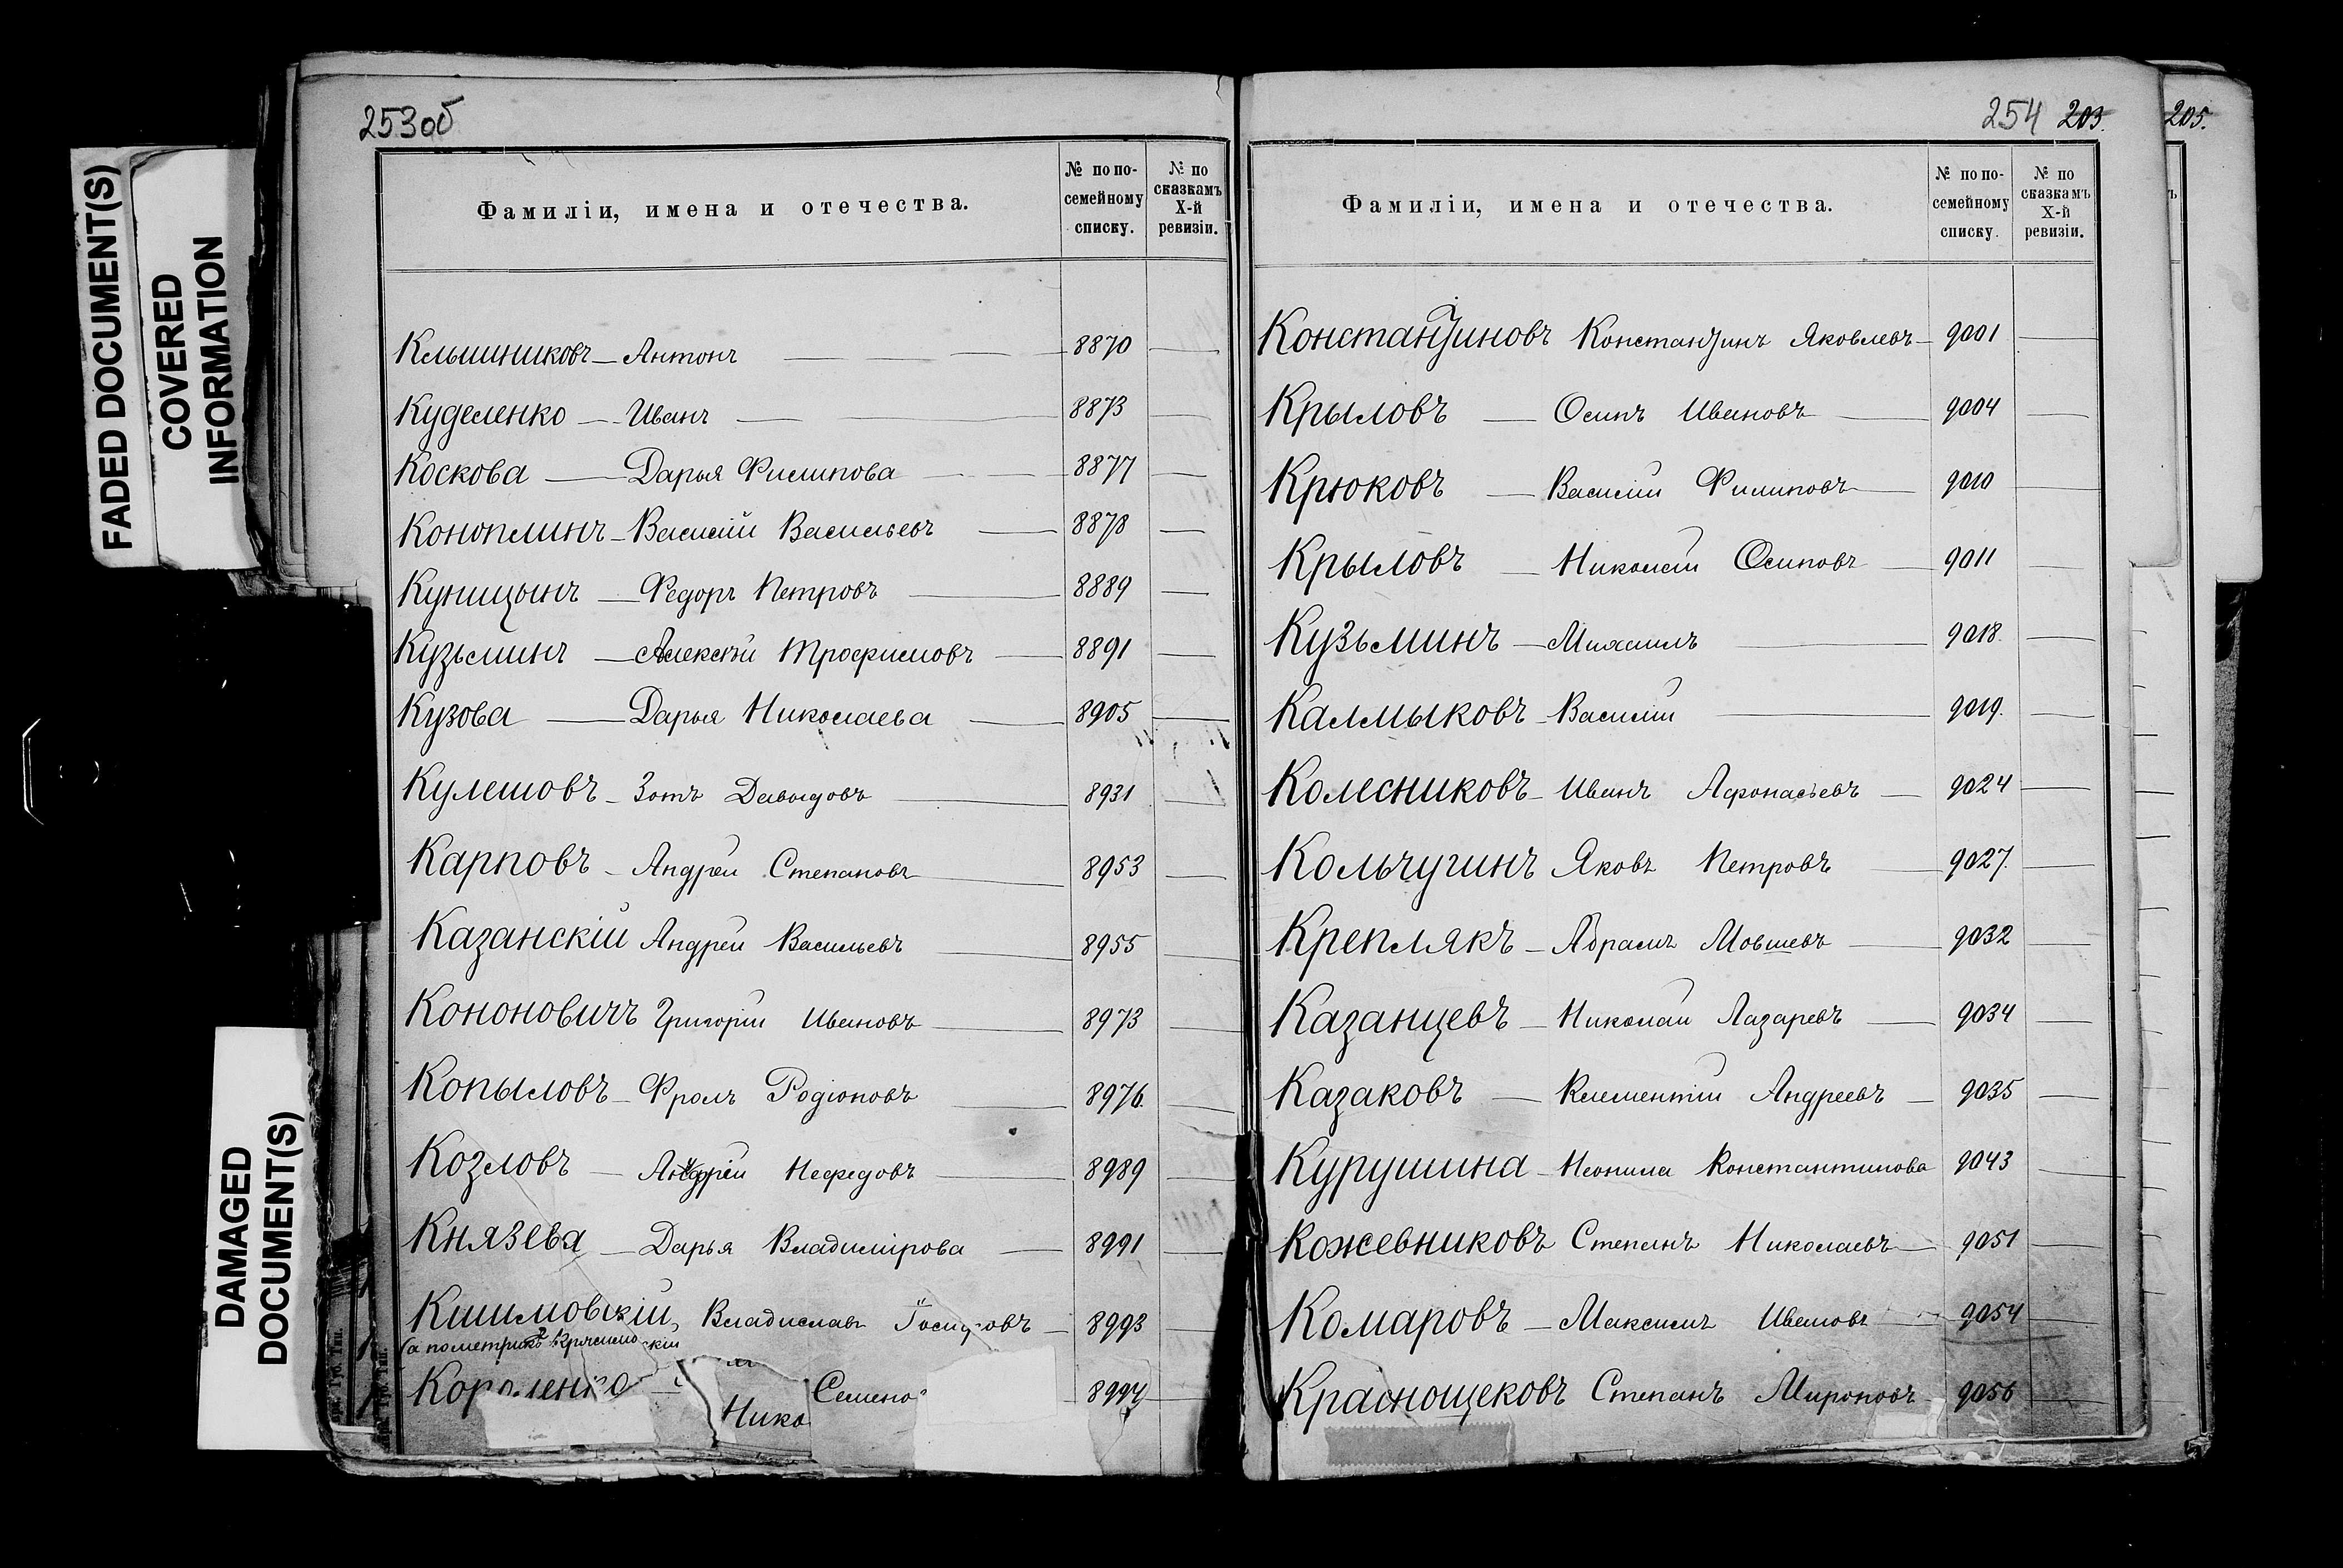 253об
Фамиліи, имена и отечества.
№ по по-
семейному
списку.
№ по
сказкамъ
X-й
ревизіи.
Клышниковъ — Антонъ — 8870 —
Куделенко — Иванъ — 8873 —
Коскова — Дарья Филипова — 8877 —
Коноплинъ — Василій Васильевъ — 8878 —
Куницынъ — Федоръ Петровъ — 8889 —
Кузьминъ — Алексѣй Трофимовъ — 8891 —
Кузова — Дарья Николаева — 8905 —
Кулешовъ — Зотъ Давыдовъ — 8931 —
Карповъ — Андрей Степановъ — 8953 —
Казанскій Андрей Васильевъ — 8955 —
Кононовичъ Григорій Ивановъ — 8973 —
Копыловъ — Фролъ Родіоновъ — 8976. —
Козловъ — Андрей Нефедовъ — 8989 —
Князева — Дарья Владимірова — 8991 —
Владиславъ — 8993 —
(а пометрикѣ
Семено
Нико
8994 —
254 203.
Фамиліи, имена и отечества.
№ по по-
семейному
списку.
№ по
сказкамъ
X-й
ревизіи.
Константиновъ Константинъ Яковлевъ — 9001 —
Крыловъ — Осипъ Ивановъ — 9004 —
Крюковъ — Василій Филиповъ — 9010 —
Крыловъ — Николай Осиповъ — 9011 —
Кузьминъ — Михаилъ — 9018. —
Калмыковъ — Василій — 9019. —
Колесниковъ — Иванъ Афонасьевъ — 9024 —
Кольчугинъ Яковъ Петровъ — 9027. —
Креплякъ — Абрамъ Мовшевъ — 9032 —
Казанцевъ — Николай Лазаревъ — 9034 —
Казаковъ — Климентій Андреевъ — 9035 —
Курушина — Неонила Константинова 9043 —
Кожевниковъ Степанъ Николаевъ — 9051 —
Комаровъ — Максимъ Ивановъ — 9054 —
Краснощековъ Степанъ Мироновъ — 9056 —
205.
FADED DOCUMENT(S)
COVERED
INFORMATION
DAMAGED
DOCUMENT(S)